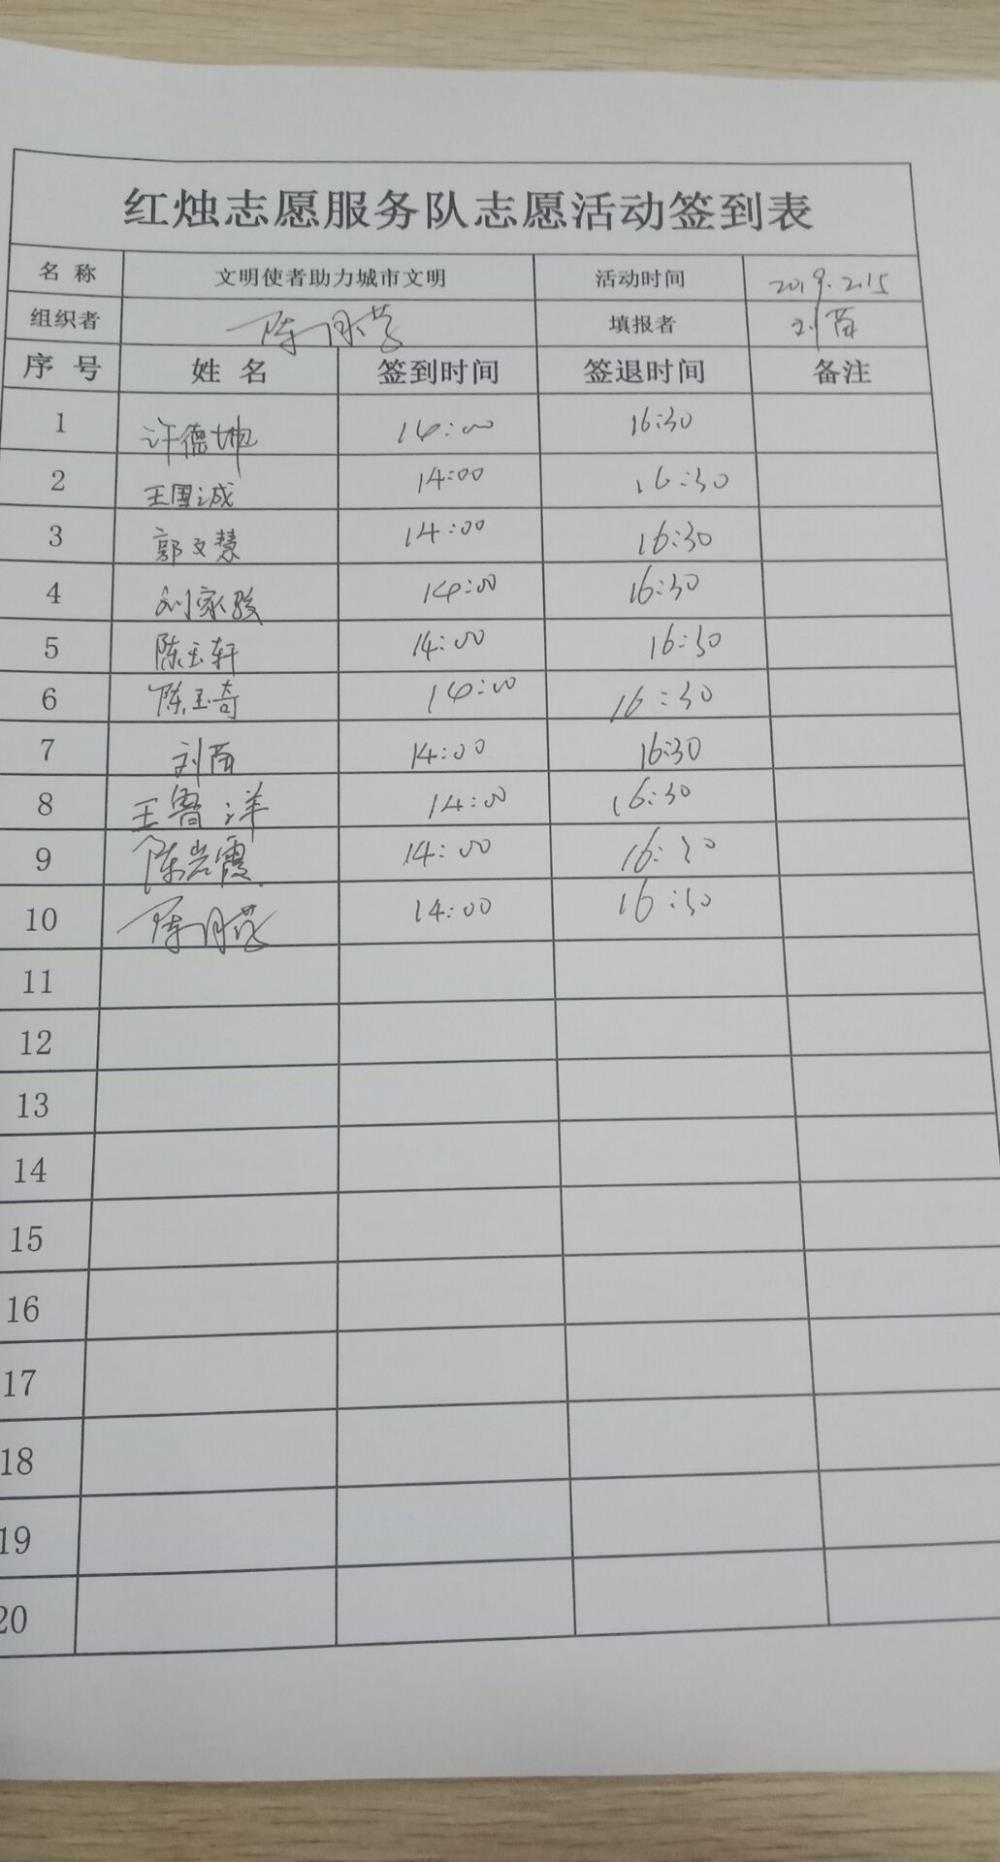 红烛志愿服务队志愿活动签到表
名 称 文明使者助力城市文明 活动时间 2019.2.15
组织者 陈月 填报者 刘
序 号 姓 名 签到时间 签退时间 备注
1 许德坤 14:00 16:30
2 王国诚 14:00 16:30
3 郭文慧 14:00 16:30
4 刘家骏 14:00 16:30
5 陈玉轩 14:00 16:30
6 陈玉奇 14:00 16:30
7 刘 14:00 16:30
8 王鲁洋 14:00 16:30
9 陈岩霞 14:00 16:30
10 陈月 14:00 16:30
11
12
13
14
15
16
17
18
19
20